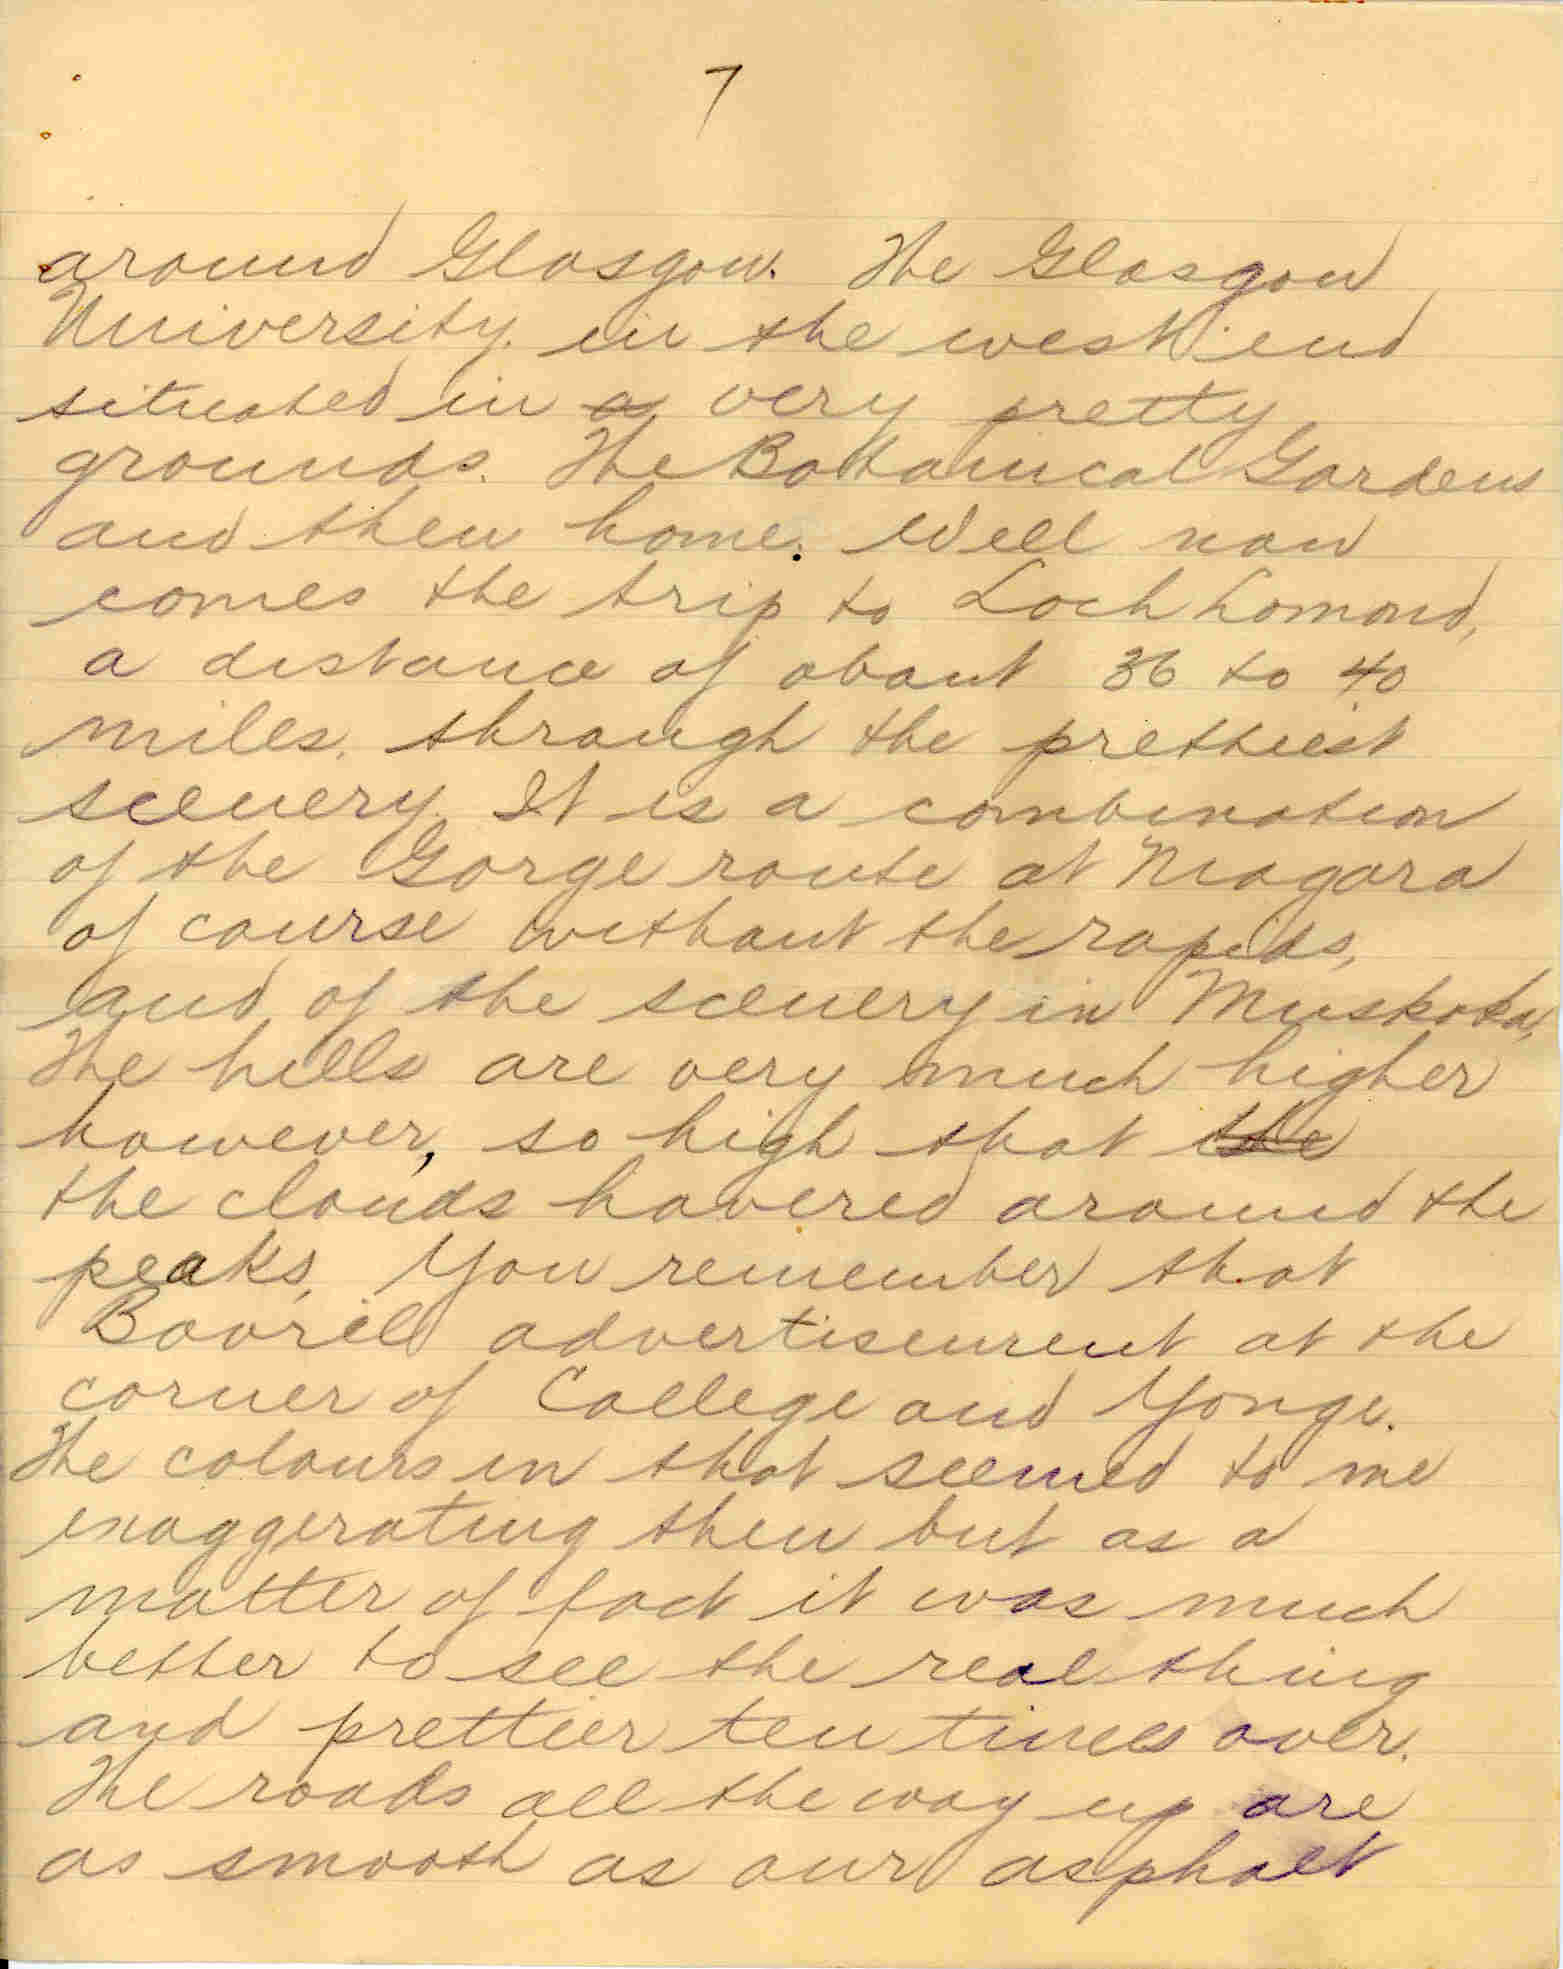 7
around Glasgow. The Glasgow
University. in the west end
situated in a very pretty
grounds. The Botanical Gardens
and then home. Well now
comes the trip to Loch Lomond,
a distance of about 36 to 40
miles. through the prettiest
scenery. It is a combination
of the Gorge route at Niagara
of course without the rapids,
and of the scenery in Muskoka,
The hills are very much higher
however, so high that the
the clouds hovered around the
peaks. You remember that
Bovril advertisement at the
corner of College and Yonge.
The colours in that seemed to me
exaggerating then but as a
matter of fact it was much
better to see the real thing
and prettier ten times over.
The roads all the way up are
as smooth as our asphalt